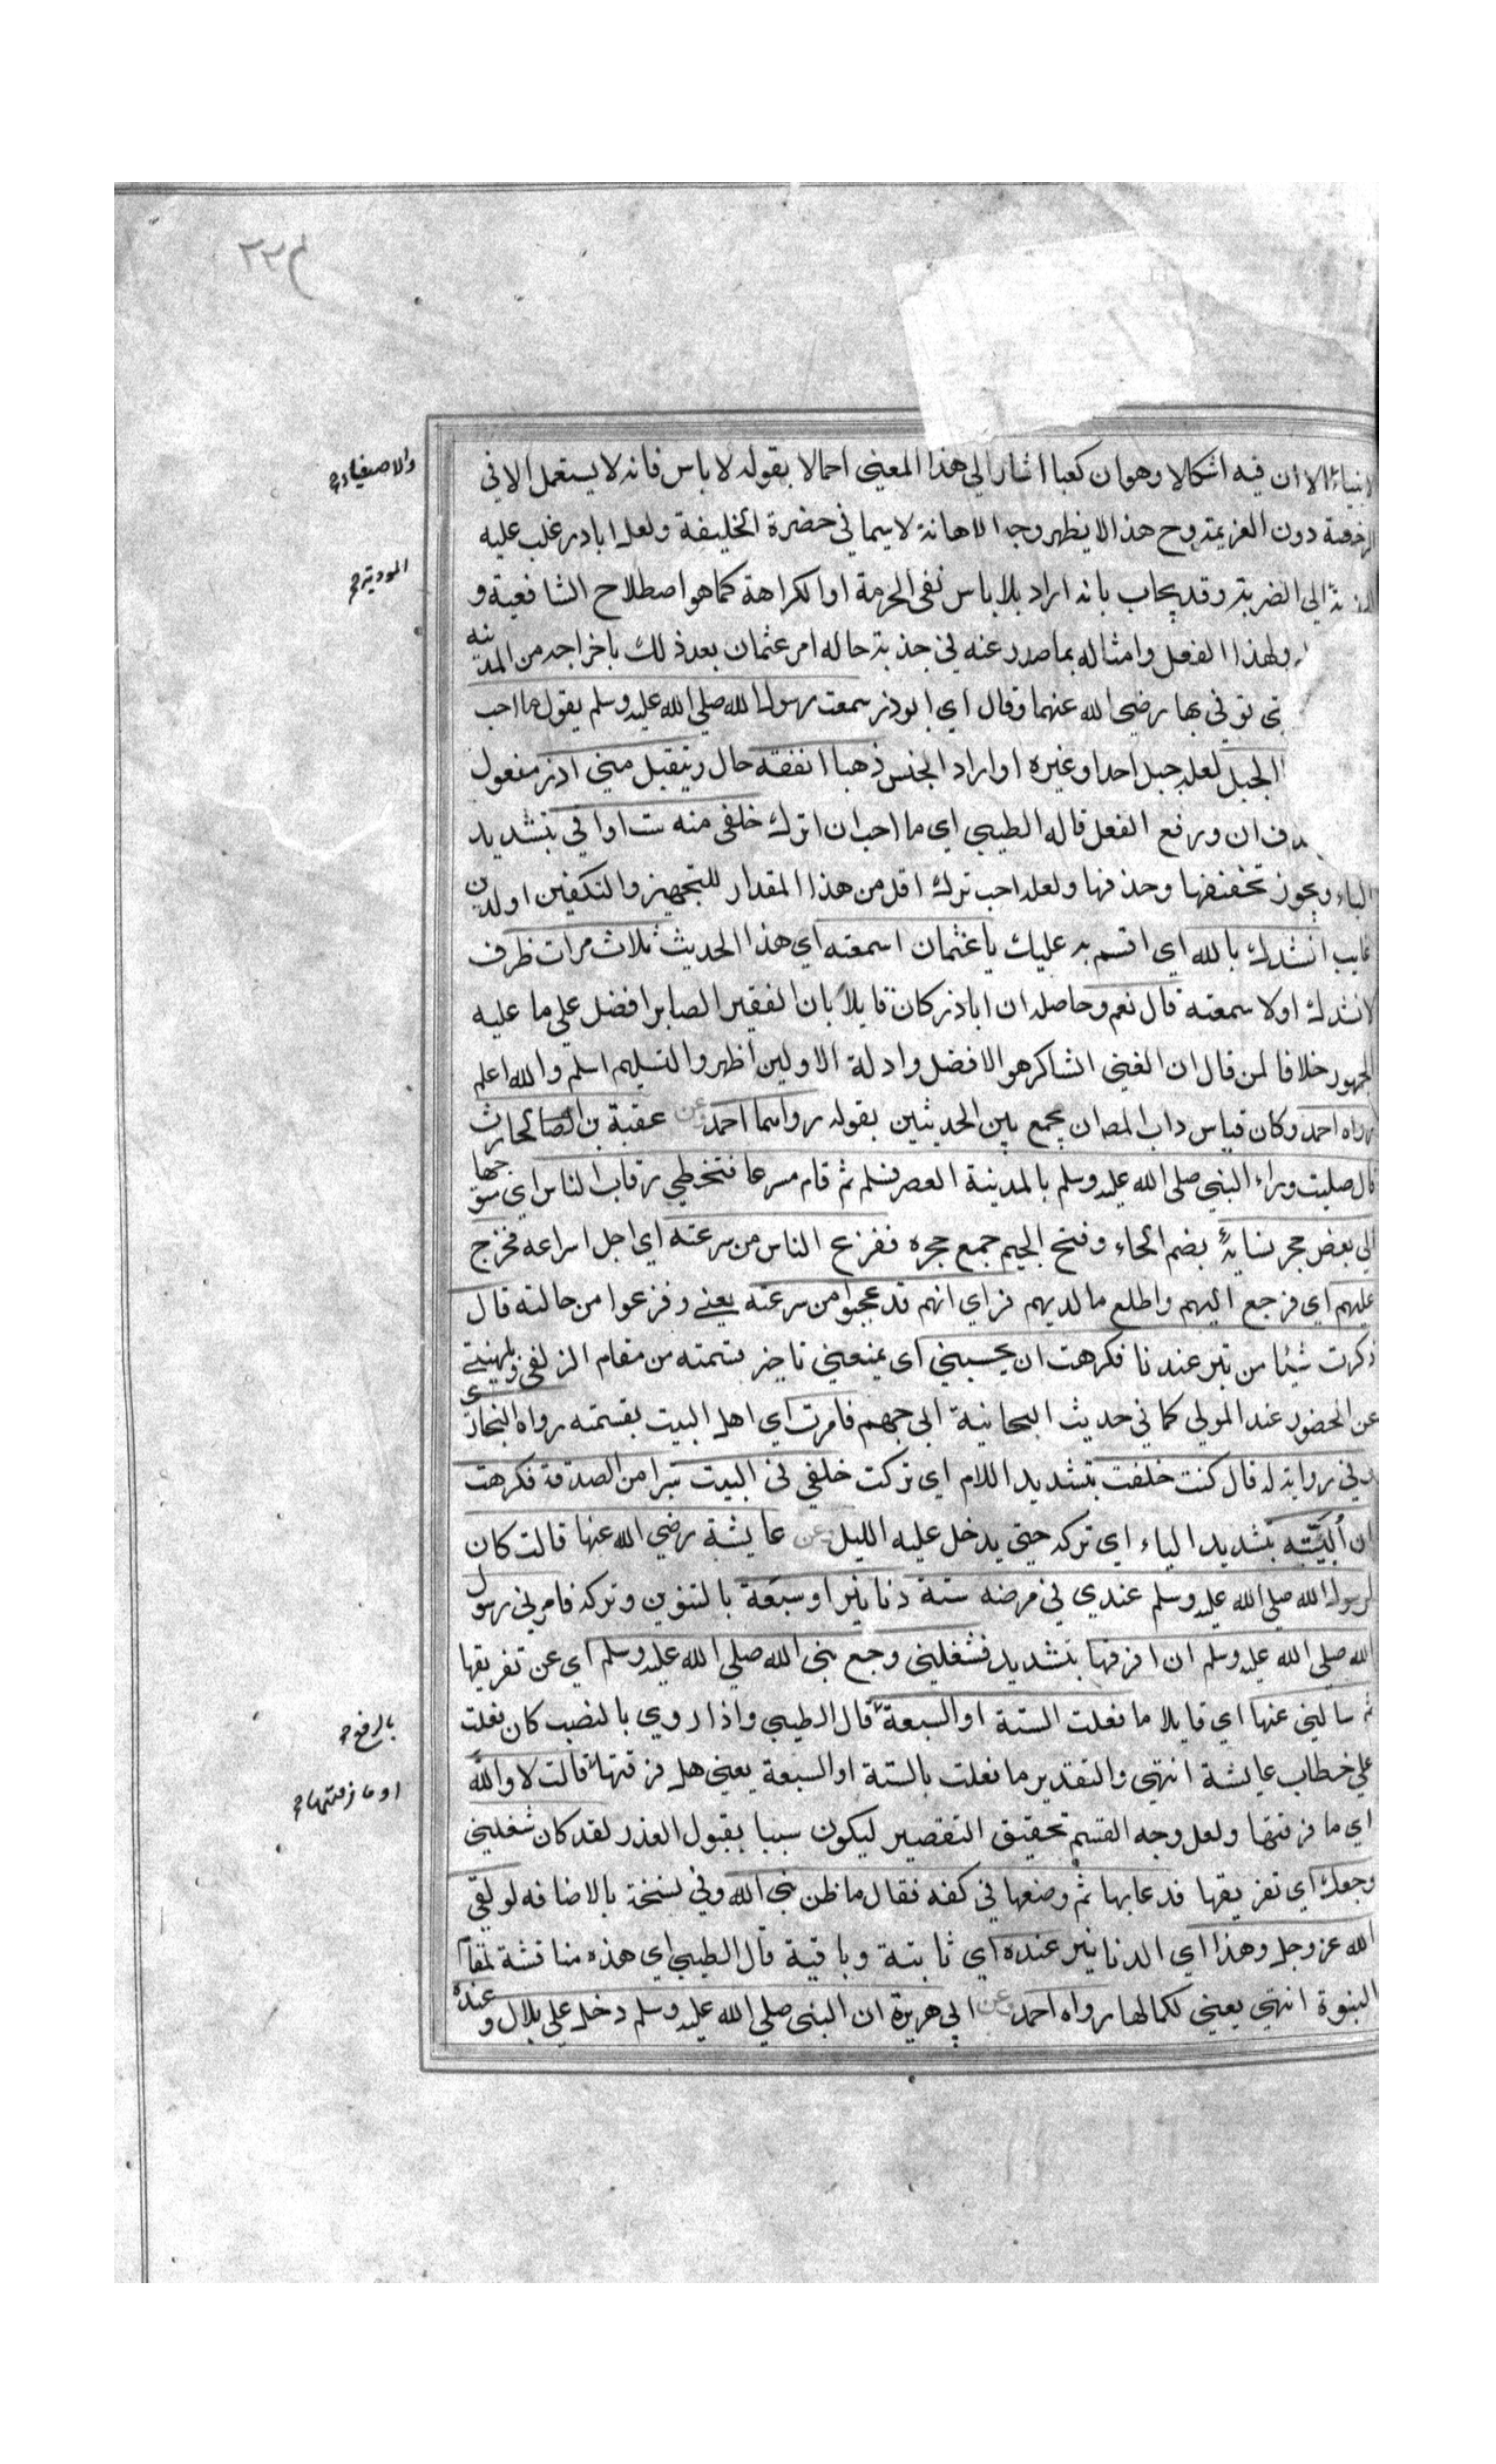 ٢٢٣
الانبياء الا ان فيه اشكالا وهو ان كعبا اشار الي هذا المعني احمالا بقوله لا باس فانه لا يستعمل الا في
والاصفياء صح
الرخصة دون العزيمة وح هذا لا يظهر وجه الاهانة لا سيما في حضرة الخليفة ولعل اباذر غلب عليه
الي الضربة وقد يجاب بانه اراد بلا باس نفي الحرمة او الكراهة كما هو اصطلاح الشافعية و
المودية صح
ولهذا الفعل وامثاله بما صدر عنه في جذبة حاله امر عثمان بعد ذلك باخراجه من المدينه
توفي بها رضي الله عنهما وقال اي ابوذر سمعت رسول الله صلي الله عليه وسلم يقول ما احب
الجبل لعله جبل احد او غيره او اراد الجنس ذهبا انفقه حال ويتقبل مني اذر مفعول
ان ورفع الفعل قاله الطيبي اي ما احب ان اترك خلفي منه ست اواقي بتشديد
الياء ويجوز تخفيفها وحذفها ولعله احب ترك اقل من هذا المقدار للتجهيز والتكفين او لدين
غايب انشدك بالله اي اقسم به عليك يا عثمان اسمعته اي هذا الحديث ثلاث مرات ظرف
لانشدك او لا سمعته قال نعم وحاصله ان اباذر كان قايلا بان الفقير الصابر افضل علي ما عليه
الجمهور خلافا لمن قال ان الغني الشاكر هو الافضل وادلة الاولين اظهر والتسليم اسلم والله اعلم
رواه احمد وكان قياس داب المص ان يجمع بين الحديثين بقوله رواهما احمد وعن عقبة بن الحارث
قال صليت وراء النبي صلي الله عليه وسلم بالمدينة العصر فسلم ثم قام مسرعا فتخطي رقاب الناس اي متوجها
الي بعض حجر نسايه بضم الحاء وفتح الجيم جمع حجره ففزع الناس من سرعته اي اجل اسراعه فخرج
عليهم اي فرجع اليهم واطلع ما لديهم فراي انهم قد عجبوا من سرعته يعني وفزعوا من حالته قال
ذكرت شيئا من تبر عندنا فكرهت ان يحبسني اي يمنعني تاخير قسمته من مقام الزلفي ويلهيني
عن الحضور عند المولي كما في حديث انبجانية ابي جهم فامرت اي اهل البيت بقسمته رواه البخاري
وفي رواية له قال كنت خلفت بتشديد اللام اي تركت خلفي في البيت تبرا من الصدقة فكرهت
ان أبيّته بتشديد الياء اي تركه حتي يدخل عليه الليل وعن عايشة رضي الله عنها قالت كان
لرسول الله صلي الله عليه وسلم عندي في مرضه ستة دنانير او سبعة بالتنوين وتركه فامرني رسول
الله صلي الله عليه وسلم ان افرقها بتشديد فشغلني وجع نبي الله صلي الله عليه وسلم اي عن تفريقها
ثم سالني عنها اي قايلا ما فعلت الستة او السبعة قال الطيبي واذا روي بالنصب كان فعلت
بالرفع صح
علي خطاب عايشة انتهي والتقدير ما فعلت بالستة او السبعة يعني هل فرقتها قالت لا والله
او ما فرقتها صح
اي ما فرقتها ولعل وجه القسم تحقيق التقصير ليكون سببا بقبول العذر لقد كان شغلني
وجعك اي تفريقها فدعا بها ثم وضعها في كفه فقال ما ظن نبي الله وفي نسخة بالاضافه لو لقي
الله عز وجل وهذا اي الدنانير عنده اي ثابتة وباقية قال الطيبي اي هذه مناقشة لمقام
النبوة انتهي يعني لكمالها رواه احمد وعن ابي هريرة ان النبي صلي الله عليه وسلم دخل علي بلال وعنده